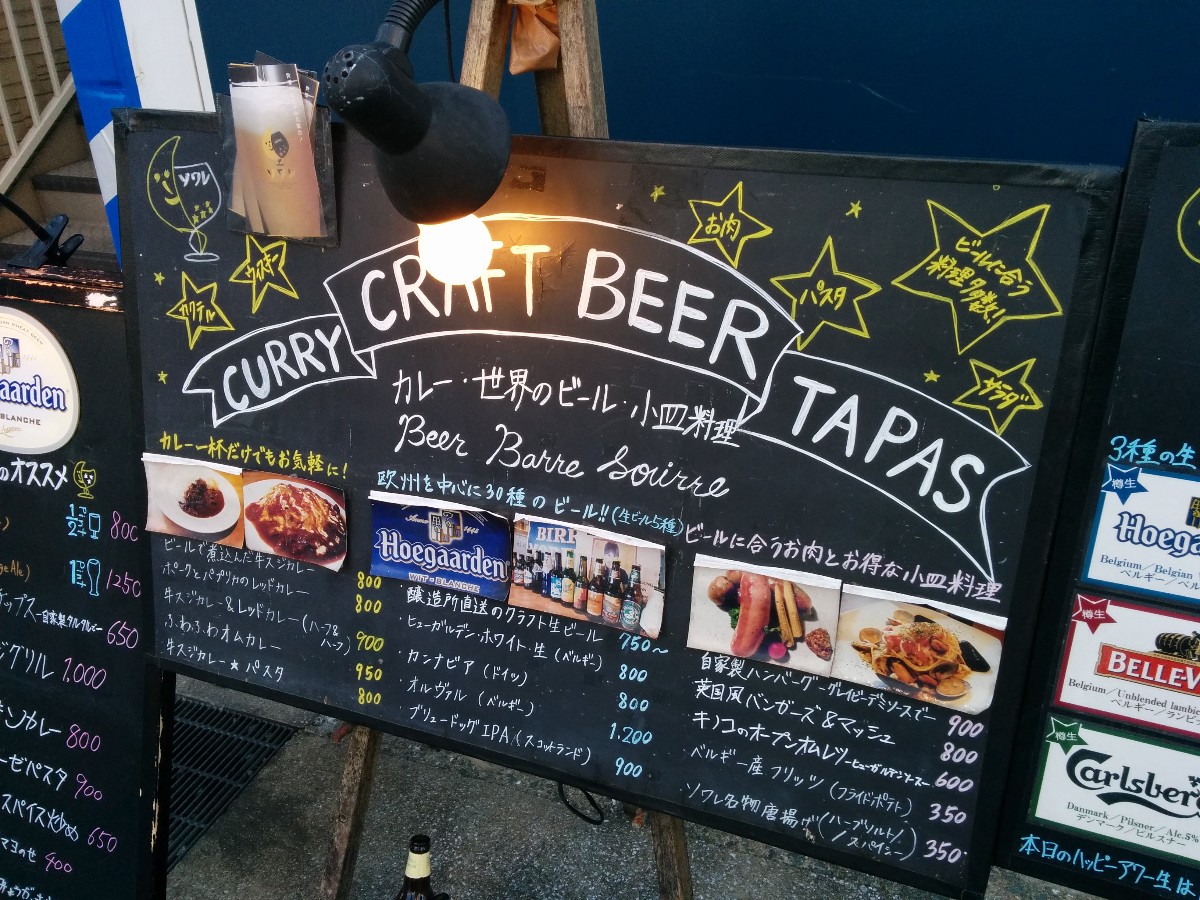 ソワレ
カクテル
ウイスキー
お肉
パスタ
ビールに合う
料理多数!
サラダ
CURRY
CRAFT BEER
TAPAS
カレー・世界のビール・小皿料理
Beer Barre Soirre
カレー一杯だけでもお気軽に!
ビールで煮込んだ牛スジカレー 800
ポークとパプリカのレッドカレー 800
牛スジカレー&レッドカレー(ハーフ&ハーフ) 900
ふわふわオムカレー 950
牛スジカレー★パスタ 800
欧州を中心に30種のビール!!(生ビール5種)
Anno 1445
Hoegaarden
WIT-BLANCHE
BIRR
醸造所直送のクラフト生ビール 750~
ヒューガルデン・ホワイト・生(ベルギー) 800
・カンナビア(ドイツ) 800
・オルヴァル(ベルギー) 1.200
ブリュードッグIPA(スコットランド) 900
ビールに合うお肉とお得な小皿料理
自家製ハンバーグ-グレイビーデミソースで- 900
英国風バンガーズ&マッシュ 800
キノコのオープンオムレツ-ヒューガルデンソース- 600
ベルギー産フリッツ(フライドポテト) 350
・ソワレ名物唐揚げ(ハーブソルト/スパイシー) 350
egaarden
BLANCHE
のオススメ
1/2 800
1 1250
geAle)
チップス-自家製 650
グリル 1.000
カレー 800
ーゼパスタ 900
スパイス炒め 650
マヨのせ 400
3種の生
樽生
Hoegaa
Belgium/Belgian
ベルギー/ベ
樽生
BELLE-V
Belgium/Unblended lambic
ベルギー/ランビ
樽生
Carlsber
Denmark/Pilsner/Alc.5%
デンマーク/ピルスナー
本日のハッピーアワー生は